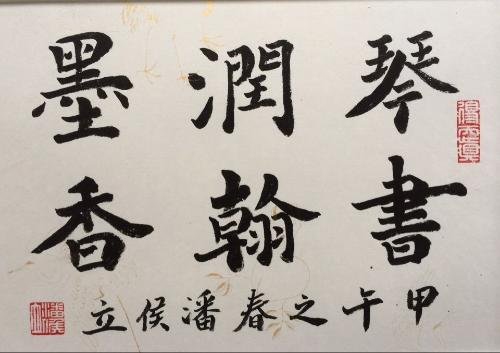 琴書
潤翰
墨香
甲午之春潘侯立